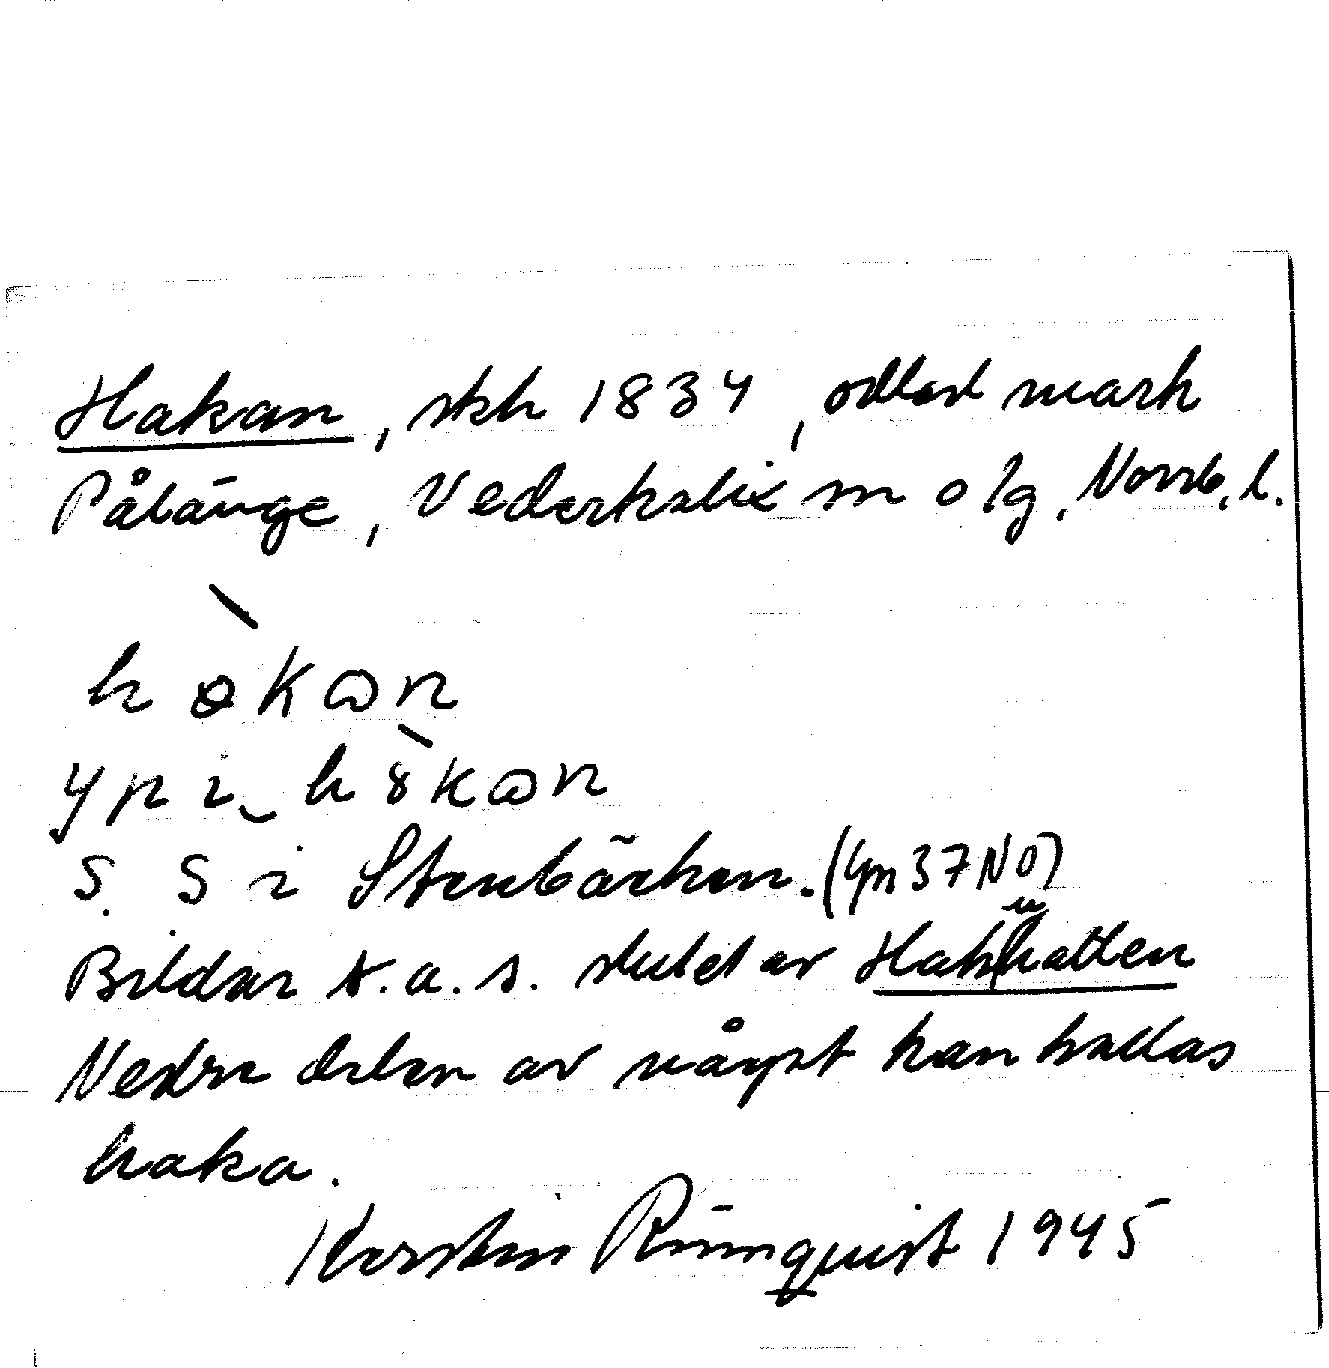 Hakan, skh 1834, odlad mark
Pålänge, Nederkalix sn o lg, Norrb. l.
hɵkan
ypi hökan
S. S i Stenbäcken. (Ym 37 NO)
Bildar t.a.s. slutet av Hakhatten
Nedre delen av något kan kallas
haka.
Kerstin Rönnquist 1945